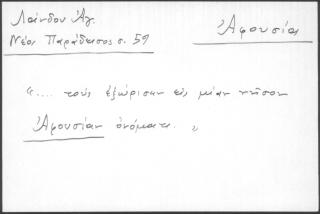 Λαίνδου Αγ.
Νέος Παράδεισος σ. 59
Ἀφουσία
".... τοὺς ἐξώρισαν εἰς μίαν νῆσον
Ἀφουσίαν ὀνόματι. "